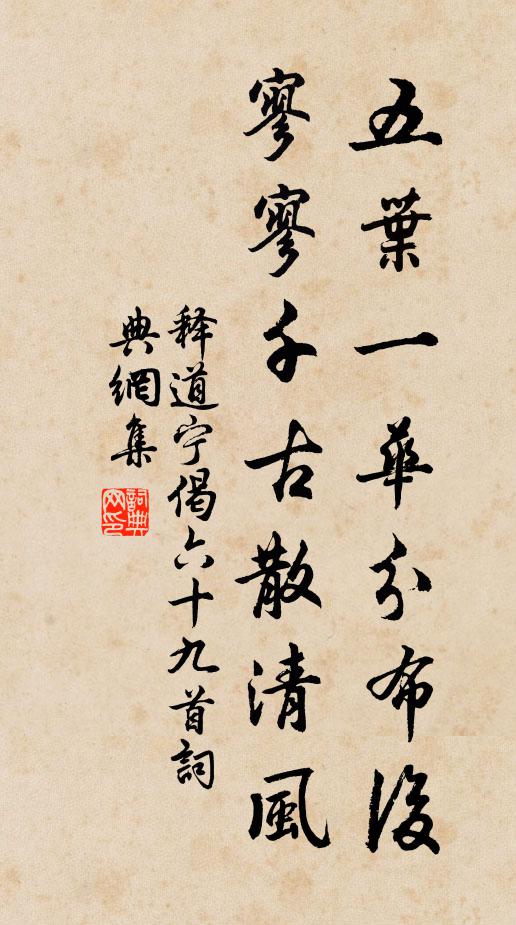 五葉一華分布後
寥寥千古散清風
释道宁偈六十九首詞
典網集
詞典網印